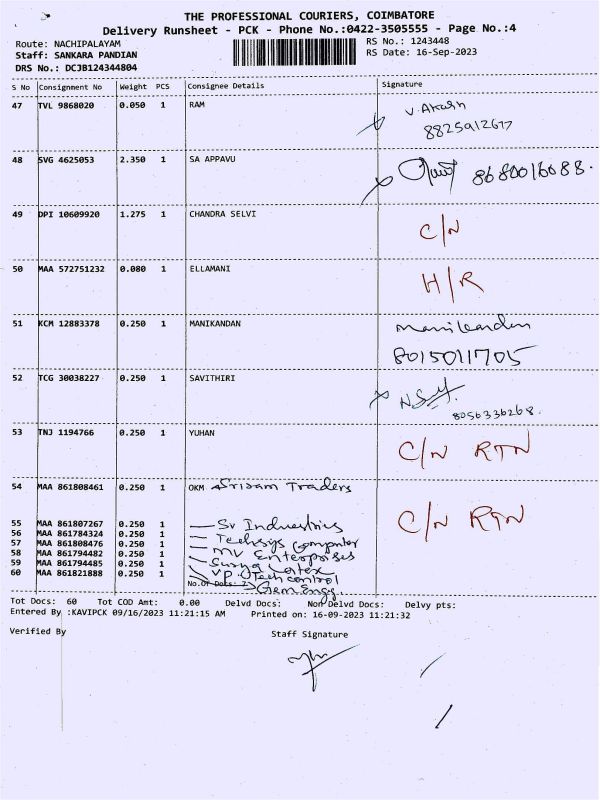 THE PROFESSIONAL COURIERS, COIMBATORE
Delivery Runsheet - PCK - Phone No.:0422-3505555 - Page No.:4
Route: NACHIPALAYAM RS No.: 1243448
Staff: SANKARA PANDIAN RS Date: 16-Sep-2023
DRS No.: DCJB124344804
S No Consignment No Weight PCS Consignee Details Signature
47 TVL 9868020 0.050 1 RAM V. Akash
8825912677
48 SVG 4625053 2.350 1 SA APPAVU 8680016088.
49 DPI 10609920 1.275 1 CHANDRA SELVI C/N
50 MAA 572751232 0.080 1 ELLAMANI H/R
51 KCM 12883378 0.250 1 MANIKANDAN Manikandan
8015011705
52 TCG 30038227 0.250 1 SAVITHIRI
8056336268.
53 TNJ 1194766 0.250 1 YUHAN C/N RTN
54 MAA 861808461 0.250 1 OKM Sriram Traders
C/N RTN
55 MAA 861807267 0.250 1 Sv Industries
56 MAA 861784324 0.250 1 Techsys Computer
57 MAA 861808476 0.250 1 MV Enterprises
58 MAA 861794482 0.250 1 Surya
59 MAA 861794485 0.250 1 V.P. Techcontrol
60 MAA 861821888 0.250 1 No.Of Docs: Gem Engg.
Tot Docs: 60 Tot COD Amt: 0.00 Delvd Docs: Non Delvd Docs: Delvy pts:
Entered By :KAVIPCK 09/16/2023 11:21:15 AM Printed on: 16-09-2023 11:21:32
Verified By Staff Signature